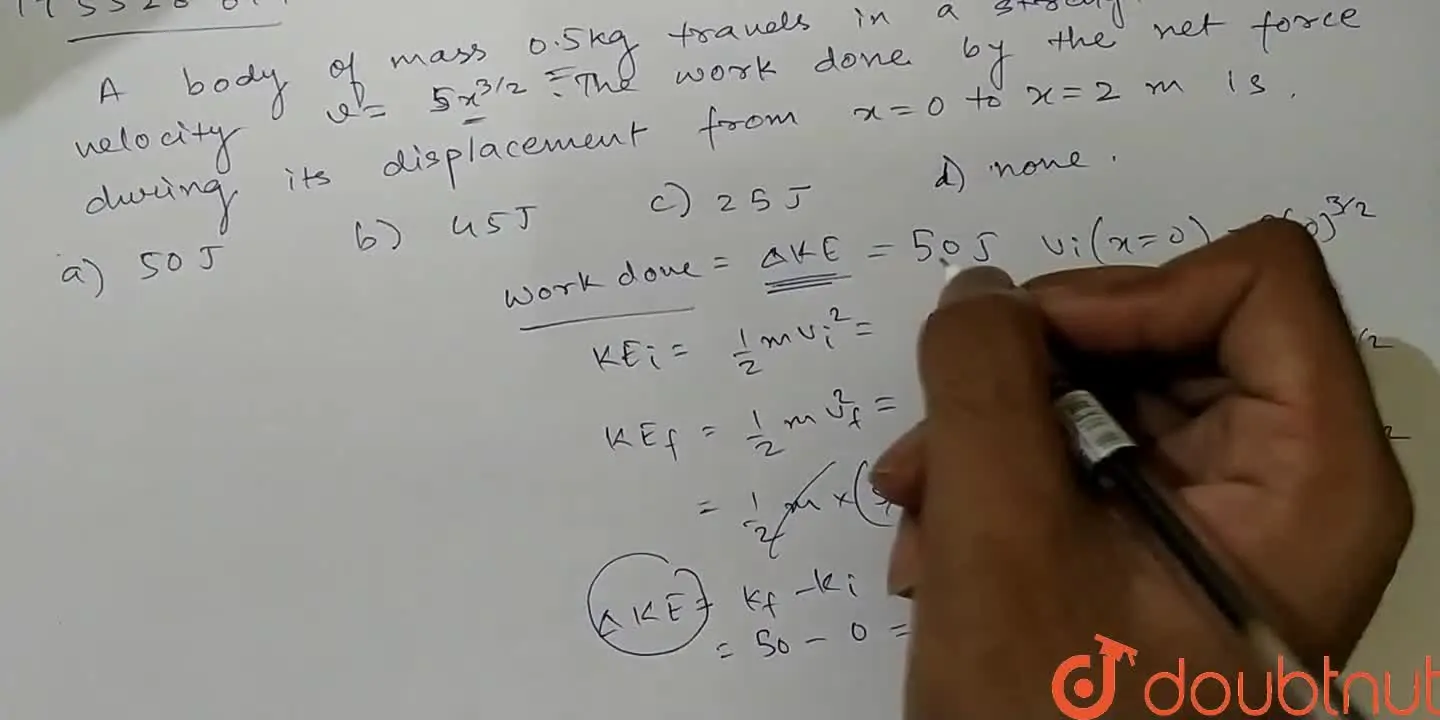 A body of mass 0.5kg travels in a
velocity v = 5x^3/2. The work done by the net force
during its displacement from x=0 to x=2 m is.
a) 50J b) 45J c) 25J d) none.
work done = ΔKE = 50J vi(x=0) =
KEi = 1/2 m vi^2 =
KEf = 1/2 m vf^2 =
= 1/2 m x (
ΔKE = Kf - Ki
= 50 - 0 =
doubtnut